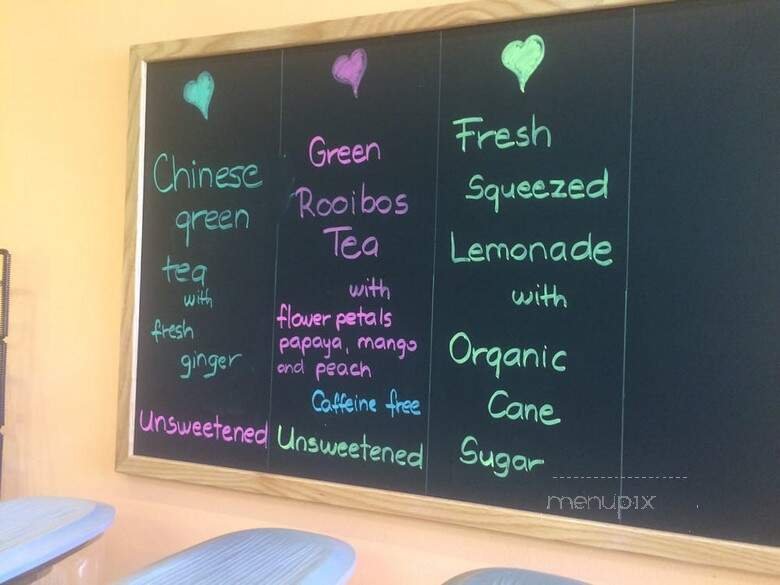 Chinese
green
tea
with
fresh
ginger
Unsweetened
Green
Rooibos
Tea
with
flower petals
papaya, mango
and peach
Caffeine free
Unsweetened
Fresh
Squeezed
Lemonade
with
Organic
Cane
Sugar
menupix